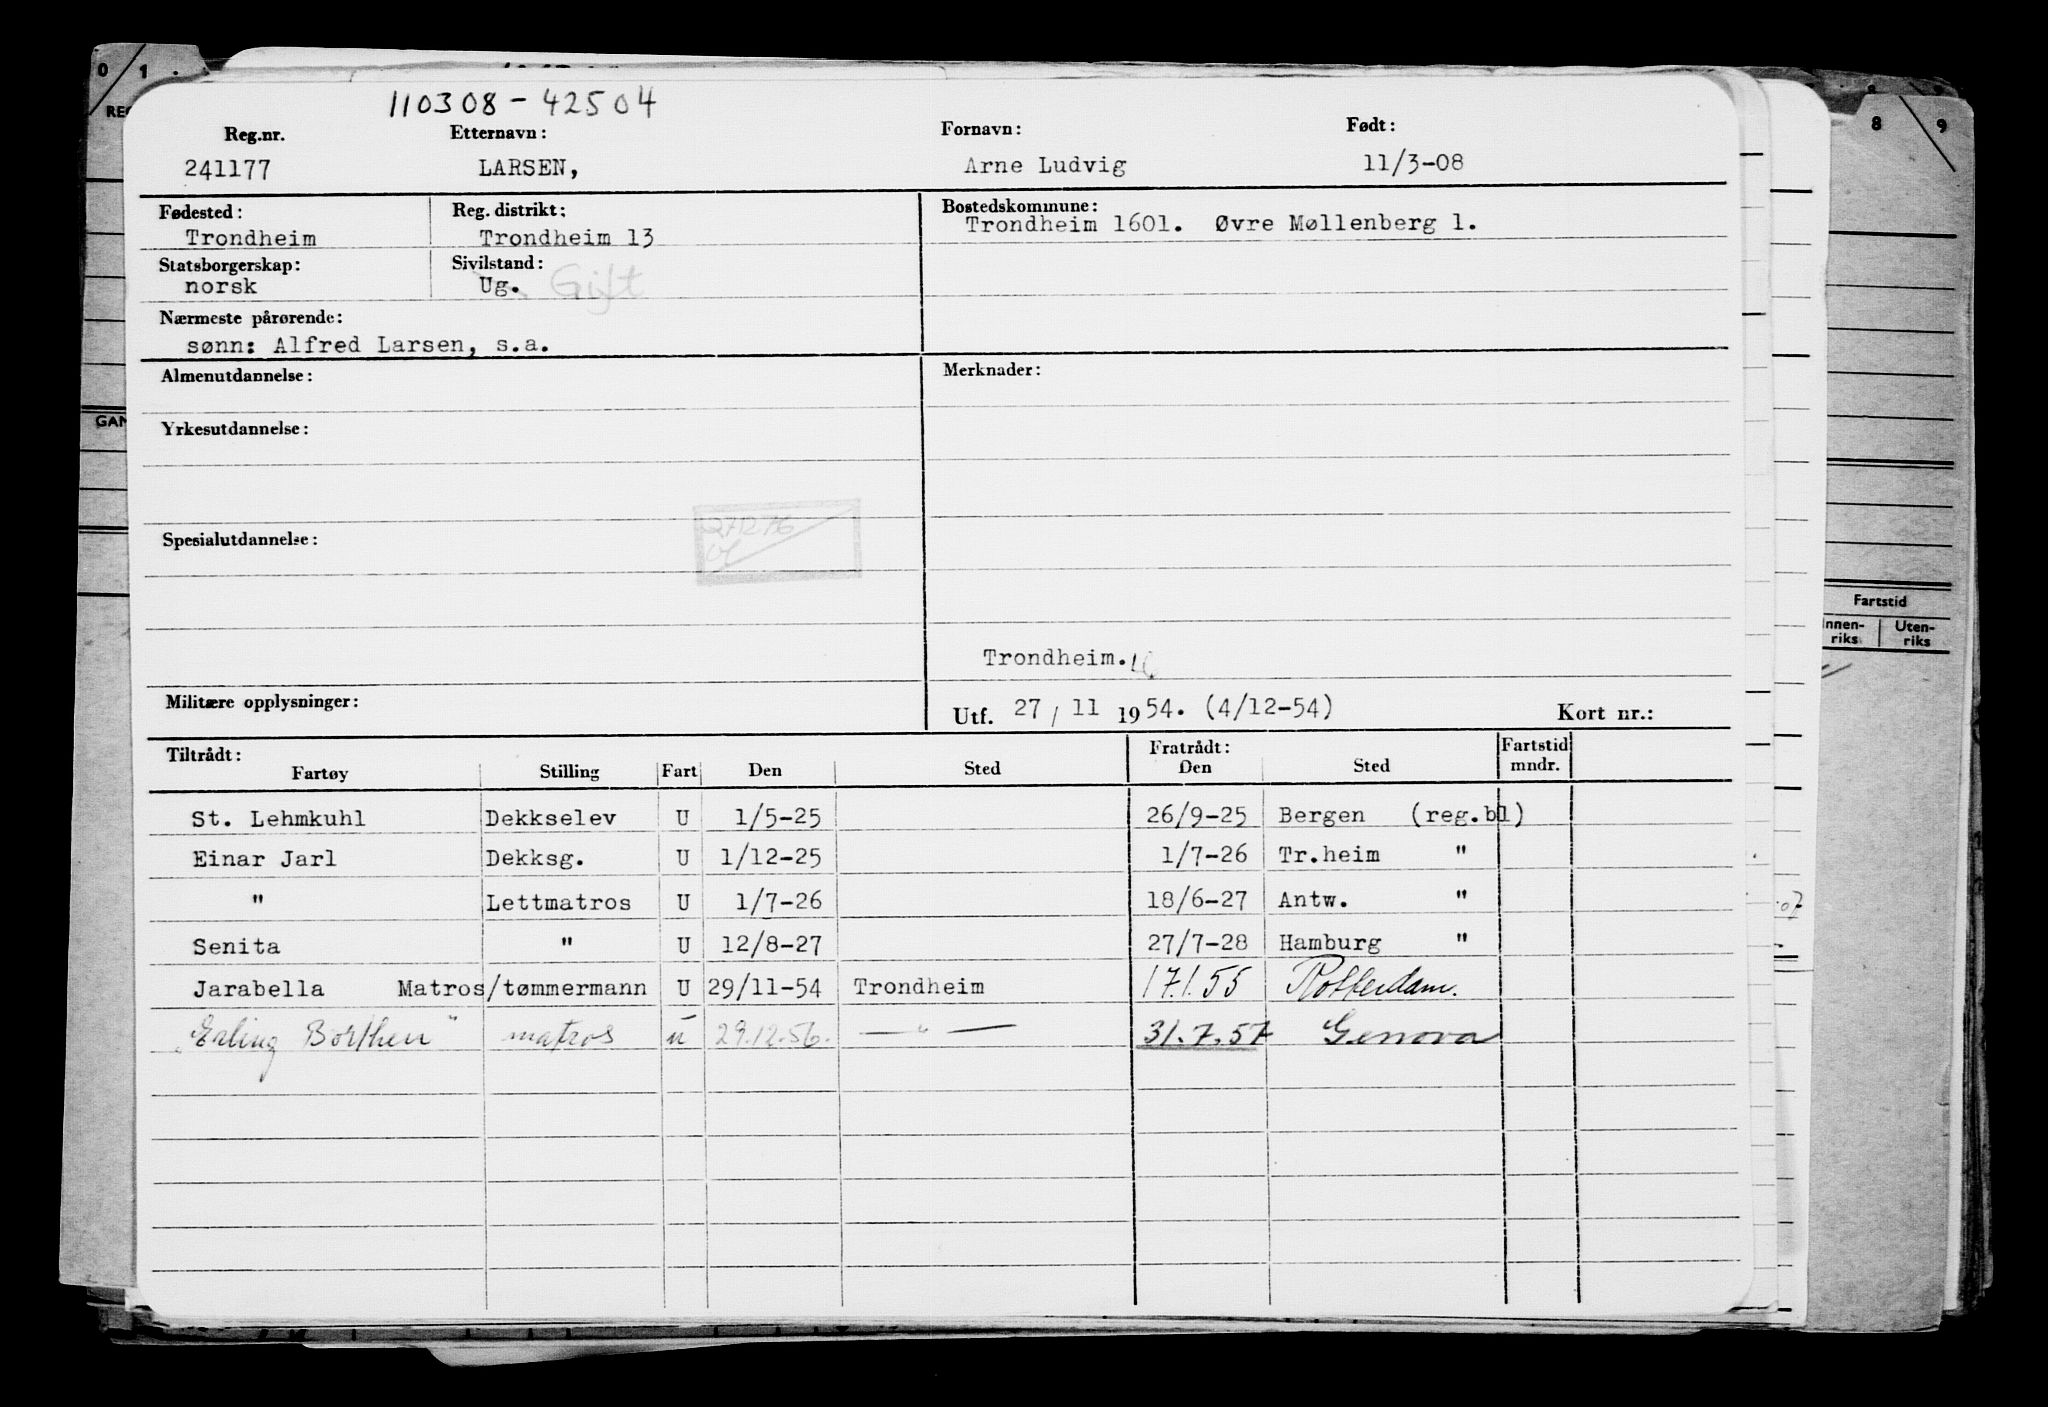 110308-42504
Reg.nr. Etternavn: Fornavn: Født:
241177 LARSEN, Arne Ludvig 11/3-08
Fødested: Reg. distrikt: Bostedskommune:
Trondheim Trondheim 13 Trondheim 1601. Øvre Møllenberg 1.
Statsborgerskap: Sivilstand:
norsk Ug. Gift
Nærmeste pårørende:
sønn: Alfred Larsen, s.a.
Almenutdannelse: Merknader:
Yrkesutdannelse:
271276
Spesialutdannelse:
Trondheim.
Militære opplysninger: Utf. 27/11 1954. (4/12-54) Kort nr.:
Tiltrådt: Fratrådt: Fartstid
Fartøy Stilling Fart Den Sted Den Sted mndr.
St. Lehmkuhl Dekkselev U 1/5-25 26/9-25 Bergen (reg.bl)
Einar Jarl Dekksg. U 1/12-25 1/7-26 Tr.heim "
" Lettmatros U 1/7-26 18/6-27 Antw. "
Senita " U 12/8-27 27/7-28 Hamburg "
Jarabella Matros/tømmermann U 29/11-54 Trondheim 17.1.55 Rotterdam.
"Erling Borthen" matros u 29.12.56. —"— 31.7.57 Genova
0/1
REG
GAN
8 9
Fartstid
Innen-
riks
Uten-
riks